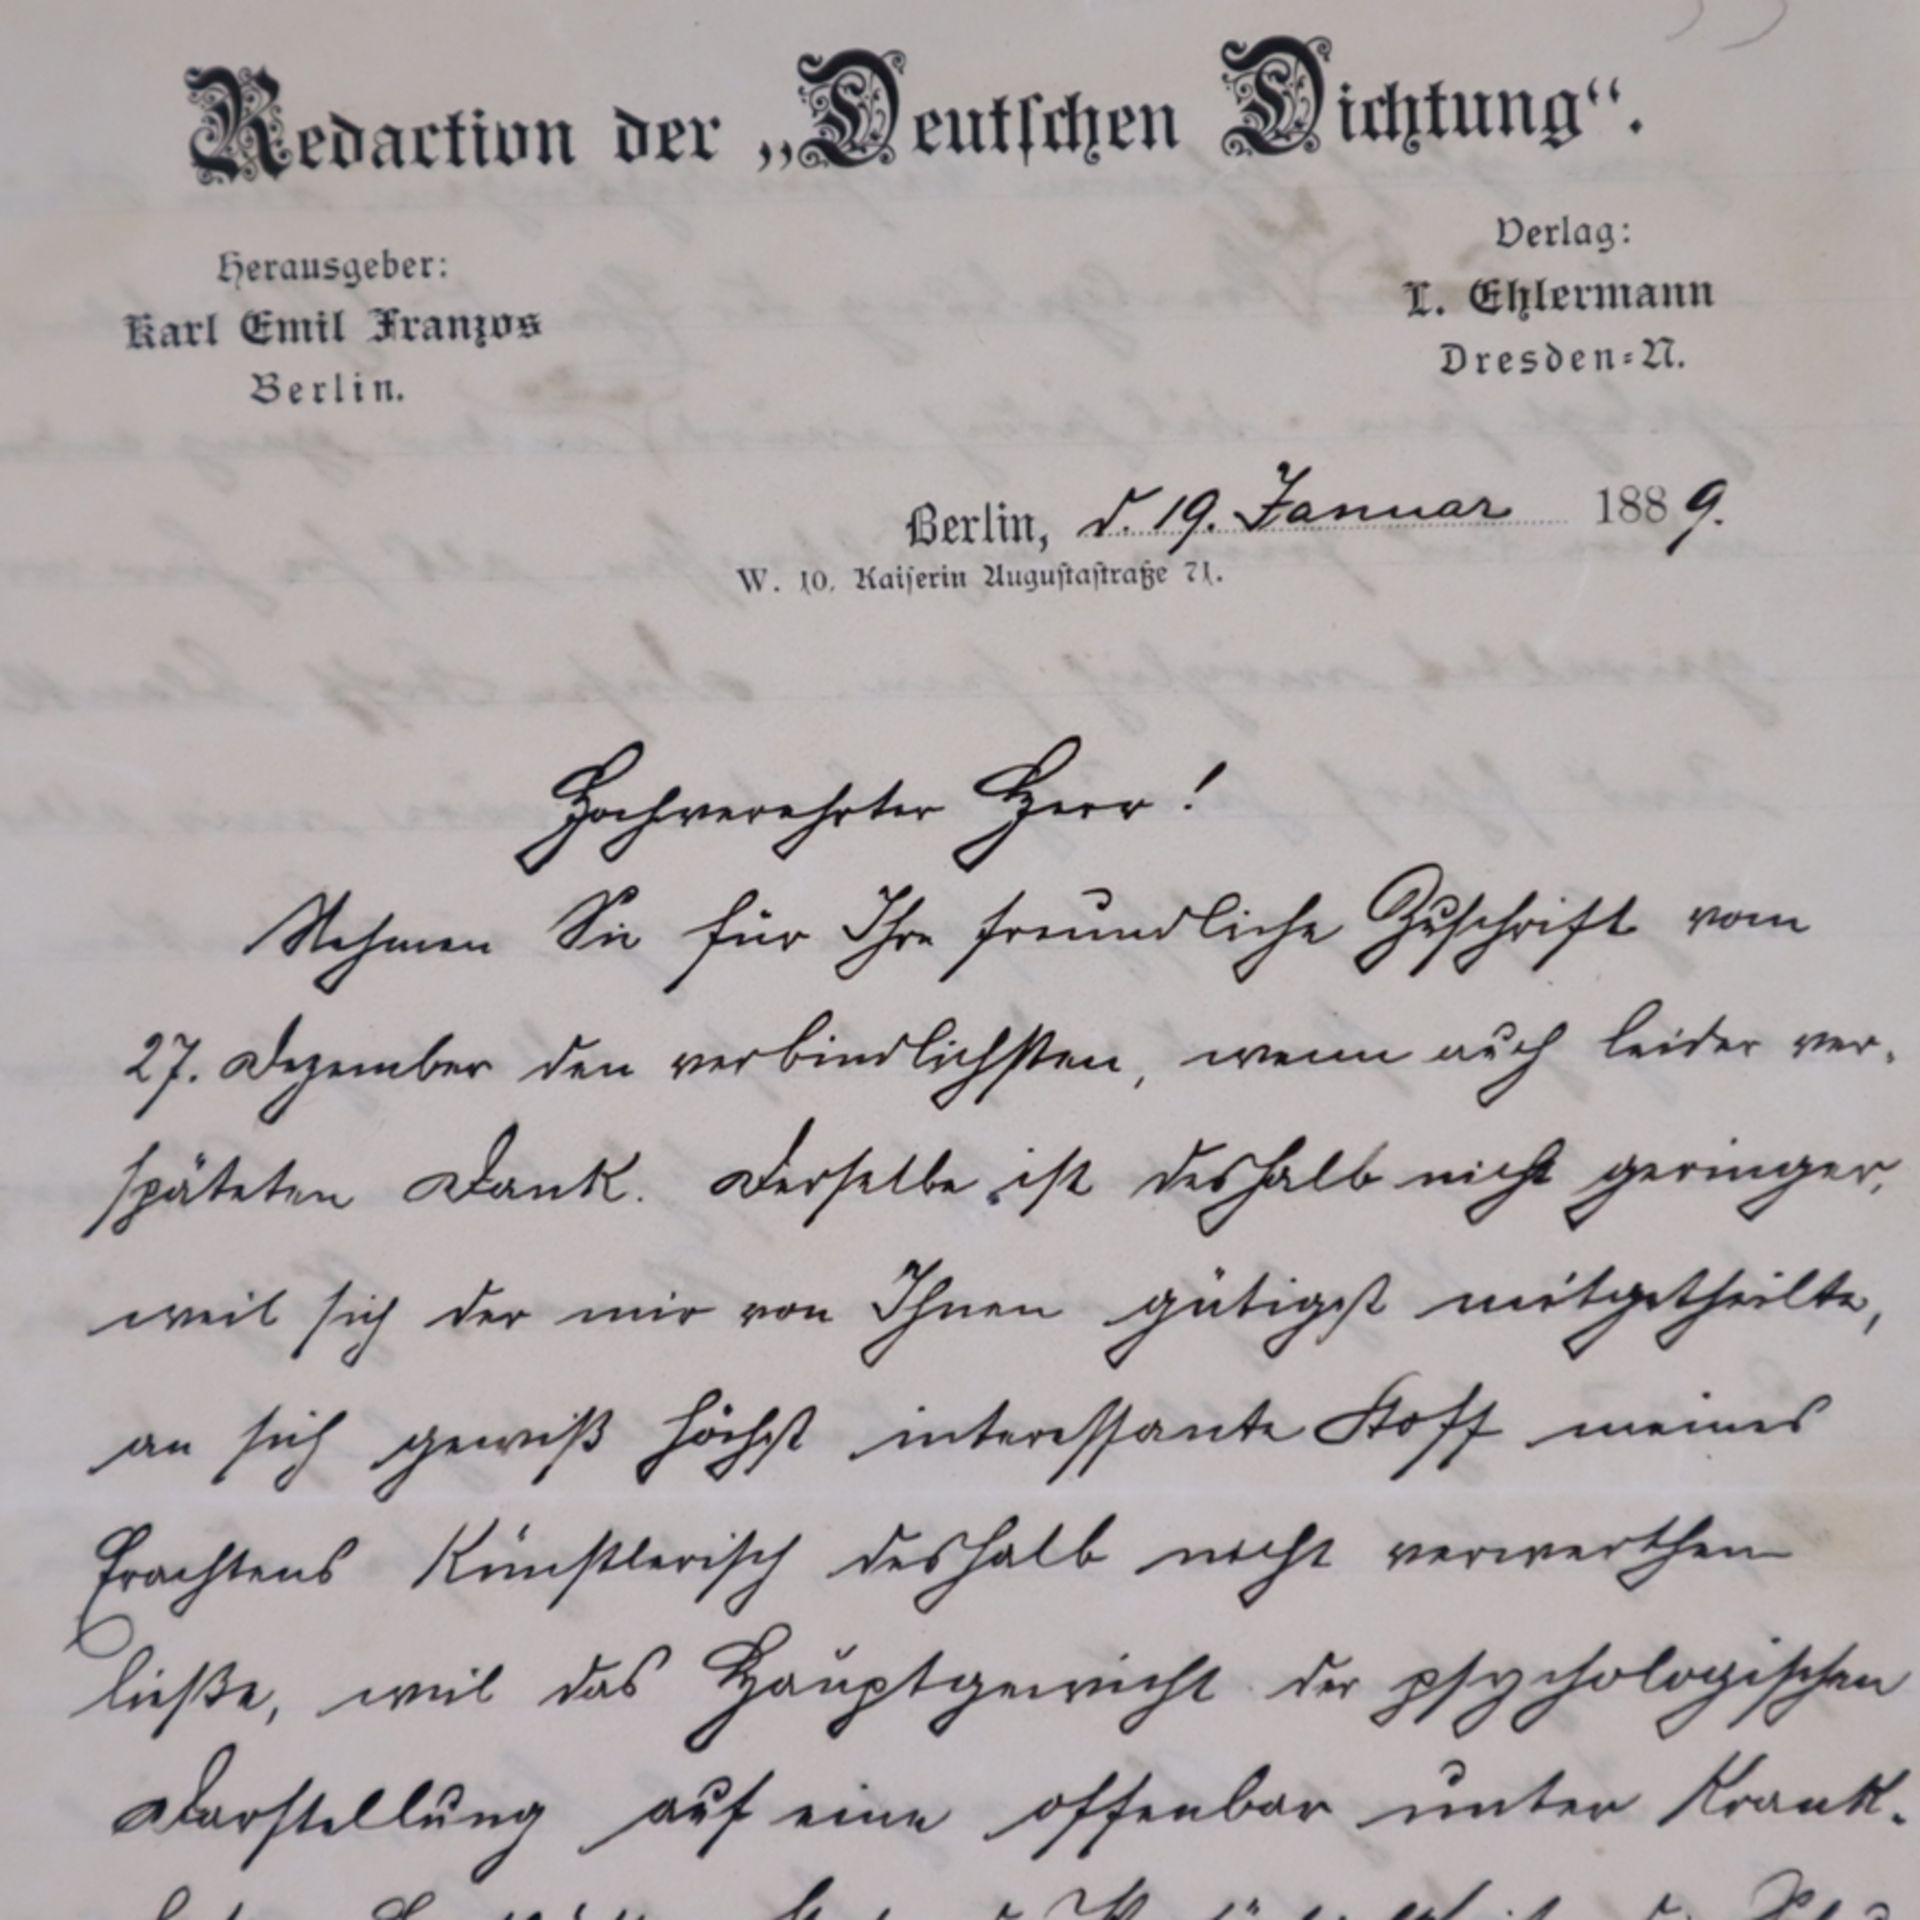 Redaction der „Deutschen Dichtung“.
Herausgeber:
Karl Emil Franzos
Berlin.
Verlag:
L. Ehlermann
Dresden-N.
Berlin, d. 19. Januar 1889.
W. 10. Kaiserin Augustastraße 71.
Hochverehrter Herr!
Nehmen Sie für Ihre freundliche Zuschrift vom
27. Dezember den verbindlichsten, wenn auch leider ver-
späteten Dank. Derselbe ist deshalb nicht geringer,
weil sich der mir von Ihnen gütigst mitgetheilte,
an sich gewiß höchst interessante Stoff meines
Erachtens künstlerisch deshalb nicht verwerthen
ließe, weil das Hauptgewicht der psychologischen
Darstellung auf eine offenbar unter Krank-